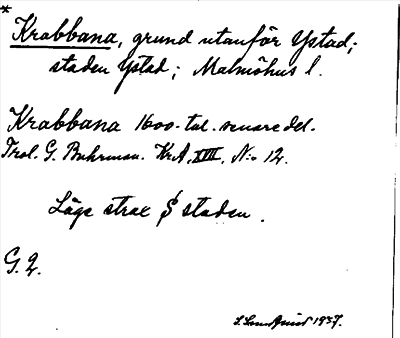 *
Krabbana, grund utanför Ystad;
staden Ystad; Malmöhus l.
Krabbana 1600-tal. senare del.
Trol. G. Buhrman. KrA, XIII, N:o 12.
Låge strax S staden.
G. 2.
S. Lundquist 1937.